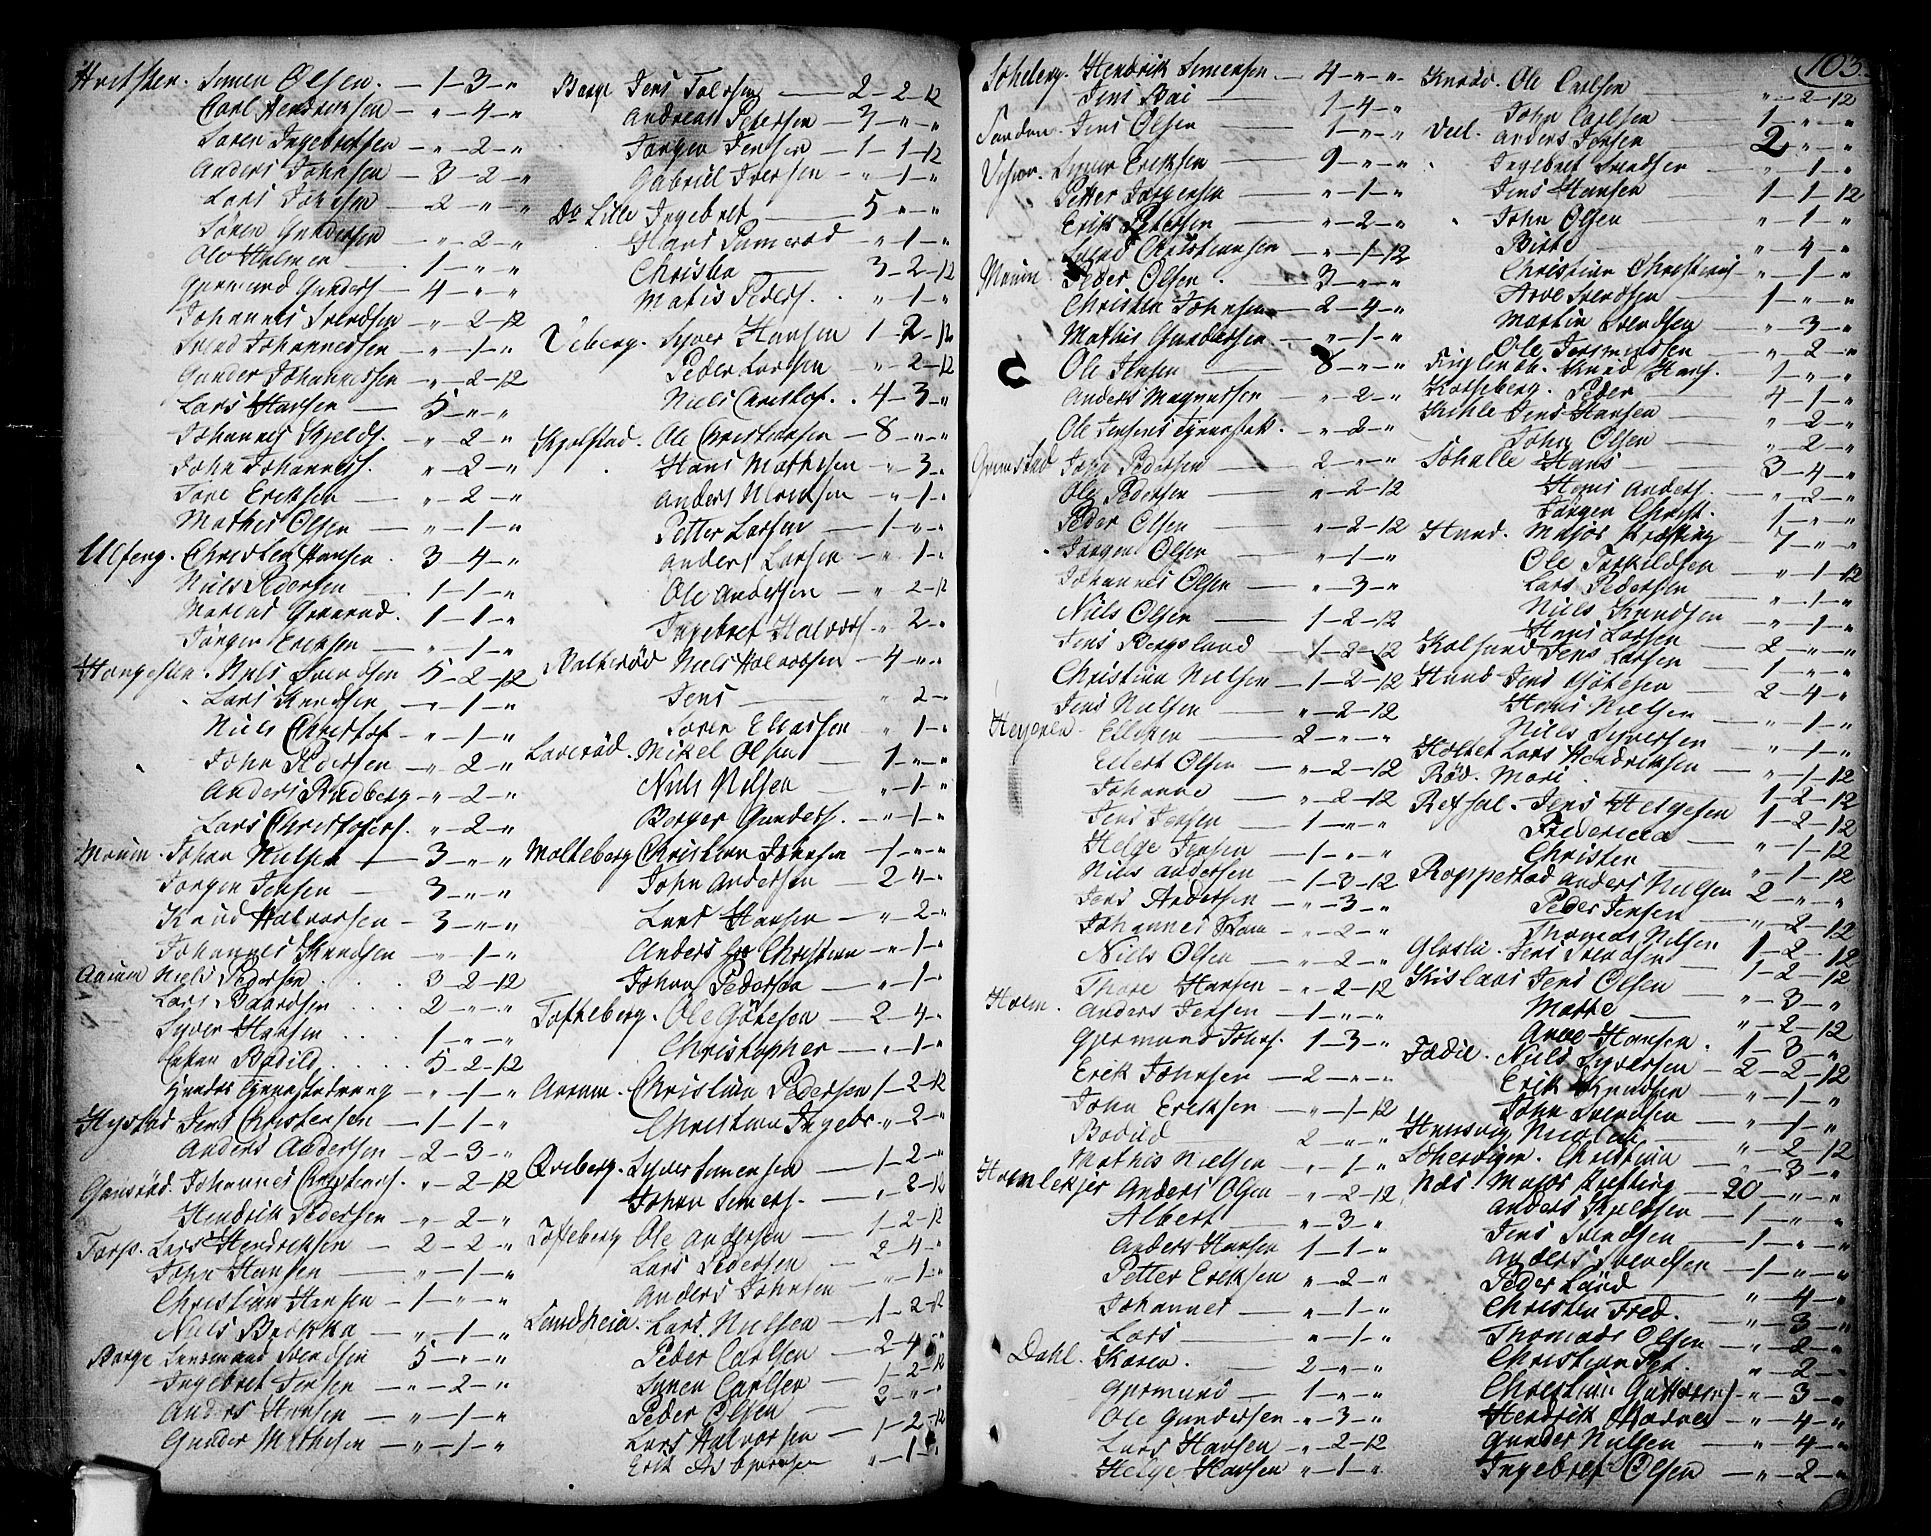 Simen Olsen. — 1—3—"
Carl Hendriksen — "—4—"
Søren Ingebretsen — "—2—"
Anders Johnsen — 3—2—"
Lars Johnsen — 2—"—"
Søren Gundersen — "—2—"
Ole Holmen — 1—"—"
Gjermund Gunders — 4—"—"
Johannes Svendsen — "—2—12
Svend Johannessen — "—1—"
Gunder Johannessen — "—2—12
Lars Hansen — 5—"—"
Johannes Kjelds. "—2—"
John Johanness. "—2—"
Tore Eriksen — "—2—"
Mathis Olsen — "—1—"
Ulfeng. Christen Hansen. 3—4—"
Niels Pedersen — 1—1—"
1—1—"
Jørgen Eriksen — "—1—"
Niels Svendsen 5—2—12
Lars Knudsen — "—1—"
Niels Christof — "—1—"
John Pedersen — "—2—"
Anders Rudberg — "—2—"
Lars Christofers. "—2—"
Moum. Johan Nielsen — 3—"—"
Jørgen Jensen — 3—"—"
Knud Halvorsen — 3—"—"
Johannes Knudsen — "—1—"
Aarum Niels Pedersen 3—2—12
Lars Baardsen 2—"—"
Syver Hansen 1—"—"
Bodild 5—2—12
— "—1—"
Jens Christensen — 1—1—"
Anders Andersen — 2—3—"
Gansrød. Johannes Christians. "—2—12
Hendrik Pedersen — "—2—"
Torp. Lars Hendriksen — 2—2—"
John Hansen — "—1—"
Christian Hansen — 1—"—"
Niels Brøkka — "—1—"
Borge Svendsen 5—"—"
Ingebret Jensen — "—2—"
Anders Hansen — "—1—"
Gunder Mathisen — "—1—"
Borge Jens Tolvsen — 2—2—12
Andreas Petersen — 3—"—"
Jørgen Jensen — 1—1—12
Gabriel Iversen — "—1—"
Do Lille Ingebret — 5—"—"
Hans — "—1—"
Christen — 3—2—12
Matis Peders. "—1—"
Veberg. Syver Hansen 1—2—12
Peder Larssen "—2—12
Niels Christof. 4—3—"
Kjølstad. Ole Christiansen — 8—"—"
Hans Mathisen — "—3—"
Anders — "—1—"
Petter Larsen — 1—"—"
Anders Larsen — "—1—"
Ole Andersen — "—2—12
Ingebret Halvors. "—2—"
Niels Halvorsen — 4—"—"
Jens — "—2—"
Søren Eliassen "—1—"
Mikel Olsen 1—"—"
Niels Nilsen — "—1—"
Børger Gunders. — "—1—"
Molteberg Christian Johnsen — 1—"—"
John Andersen — 2—4—"
Lars Hansen — "—2—"
Anders Christian — "—1—"
Johan Pedersen — "—1—"
Tofteberg. Ole Gøtesen — 2—4—"
Christopher — "—1—"
Aarum. Christian Pedersen 1—2—12
Christian Ingebr. "—2—"
Qviberg. Syver Simensen — 1—2—"
Johan Simens. "—2—12
Tofteberg Ole Andersen — 1—2—12
Lars Pedersen — 2—4—"
Anders Johnsen "—1—"
Sundheia. Lars Nielsen — 1—2—12
Peder Carlsen — 2—4
Symen Carlsen — 1—2—12
Peder Olsen — 2—"—"
Lars Halvorsen — 1—2—12
Erik Asbjørnsen "—1
103.
Soleberg. Hendrik Simensen. — 4—"—"
Jens Bai — 1—4—"
Sanden. Jens Olsen — 1—"—"
Syver Eriksen — 9—"—"
Petter Jørgensen — "—1—"
Erik Petersen — "—2—"
Svend Christiansen — "—1—12
Moum. Peder Olsen. 3—"—"
Christen Johnsen — 2—4—"
Mathis Gundersen — "—1—"
Ole Jensen — 8—"—"
Anders Magnussen — "—2—"
Ole Jensens — "—2—"
Grimstad Pedersen — 2—"—"
Ole Pedersen — "—2—12
Peder Olsen — "—2—12
Jørgen Olsen — "—1—"
Johannes Olsen — "—3—"
Niels Olsen — 1—2—12
Jens Bergsland — 1—2—12
Christian Nielsen — 1—2—12
Jens Nielsen — "—2—12
Elleken — 2—"—"
Ellert Olsen — "—2—12
Johanne — "—2—12
Jens Jensen — 1—"—"
Helge Jensen — 1—"—"
Niels Andersen — 1—3—12
Jens Andersen — "—3—"
Johannes — "—2—"
Niels Olsen — "—2—"
Thore Hansen — "—2—12
Holm. Anders Jensen — 1—"—"
Gjermund Johns. 1—3—"
Erik Johnsen — 2—"—"
John Eriksen — "—1—12
Bodild 2—"—"
Mathis Nielsen — "—1—"
Anders Olsen — "—2—12
Albert — "—3—"
Anders Hansen 1—1—"
Petter Eriksen "—2—"
Johannes — "—1—"
Lars — "—1—"
Dahl. Karen. — 2—"—"
Gjermund — 1—"—"
Ole Gundersen — "—3—"
Lars Hansen — "—2—12
Helge Hansen — "—1—"
Ole Carlsen — "—2—12
John Carlsen — 1—"—"
Anders Jensen 2—"—"
Ingebret Svendsen — "—1—"
Jens Hansen 1—1—12
John Olsen "—1—"
Birte — "—4—"
Christian "—1—"
Arve Svendsen — 1—"—"
Martin Svendsen "—3—"
Ole — "—2—"
Knud Hans. 1—"—"
Peder — 4—1—"
Kihle Jens Hansen — "—2—"
John Olsen — "—2—"
Hans — 3—4—"
Hans Anders. "—2—"
Jørgen Christ. 1—"—"
Hund. Major 7—"—"
Ole Torkildsen "—1—12
Lars Pedersen "—1—"
Niels Knudsen "—1—"
Hans Larsen — 2—"—"
Jens Larsen — 1—"—"
Hund Jens Gøtesen 2—4—"
Hans Nielsen — "—1—"
Niels Syversen "—1—"
Holtet Lars Hendriksen — "—1—12
Rød. Mari 1—2—12
Jens Helgesen 1—2—12
Fredericka "—1—12
Christen — "—1—12
Roppestad Anders Nielsen 2—"—"
Peder Jensen — "—2—12
Thomas Nilsen 1—2—12
Jens Svendsen 1—2—12
Jens Olsen "—3—"
Marte — "—2—12
Arve Hansen. 1—3—"
Niels Syversen — 2—2—12
Erik Knudsen — "—1—"
John Svendsen "—1—"
Nicolai — "—2—12
Christian — "—3—"
Næs. Major 20—"—"
Anders Kjeldsen — 1—"—"
Jens Svendsen — 1—"—"
Anders Svendsen 1—"—"
Peder Lund — "—4—"
Christen Fred. "—3—"
Thomas Olsen — "—2—"
Christian Pet. "—2—"
Christian "—3—"
Hendrik — "—4—"
Gunder Nielsen — "—4—"
Ingebret Olsen — "—2—"